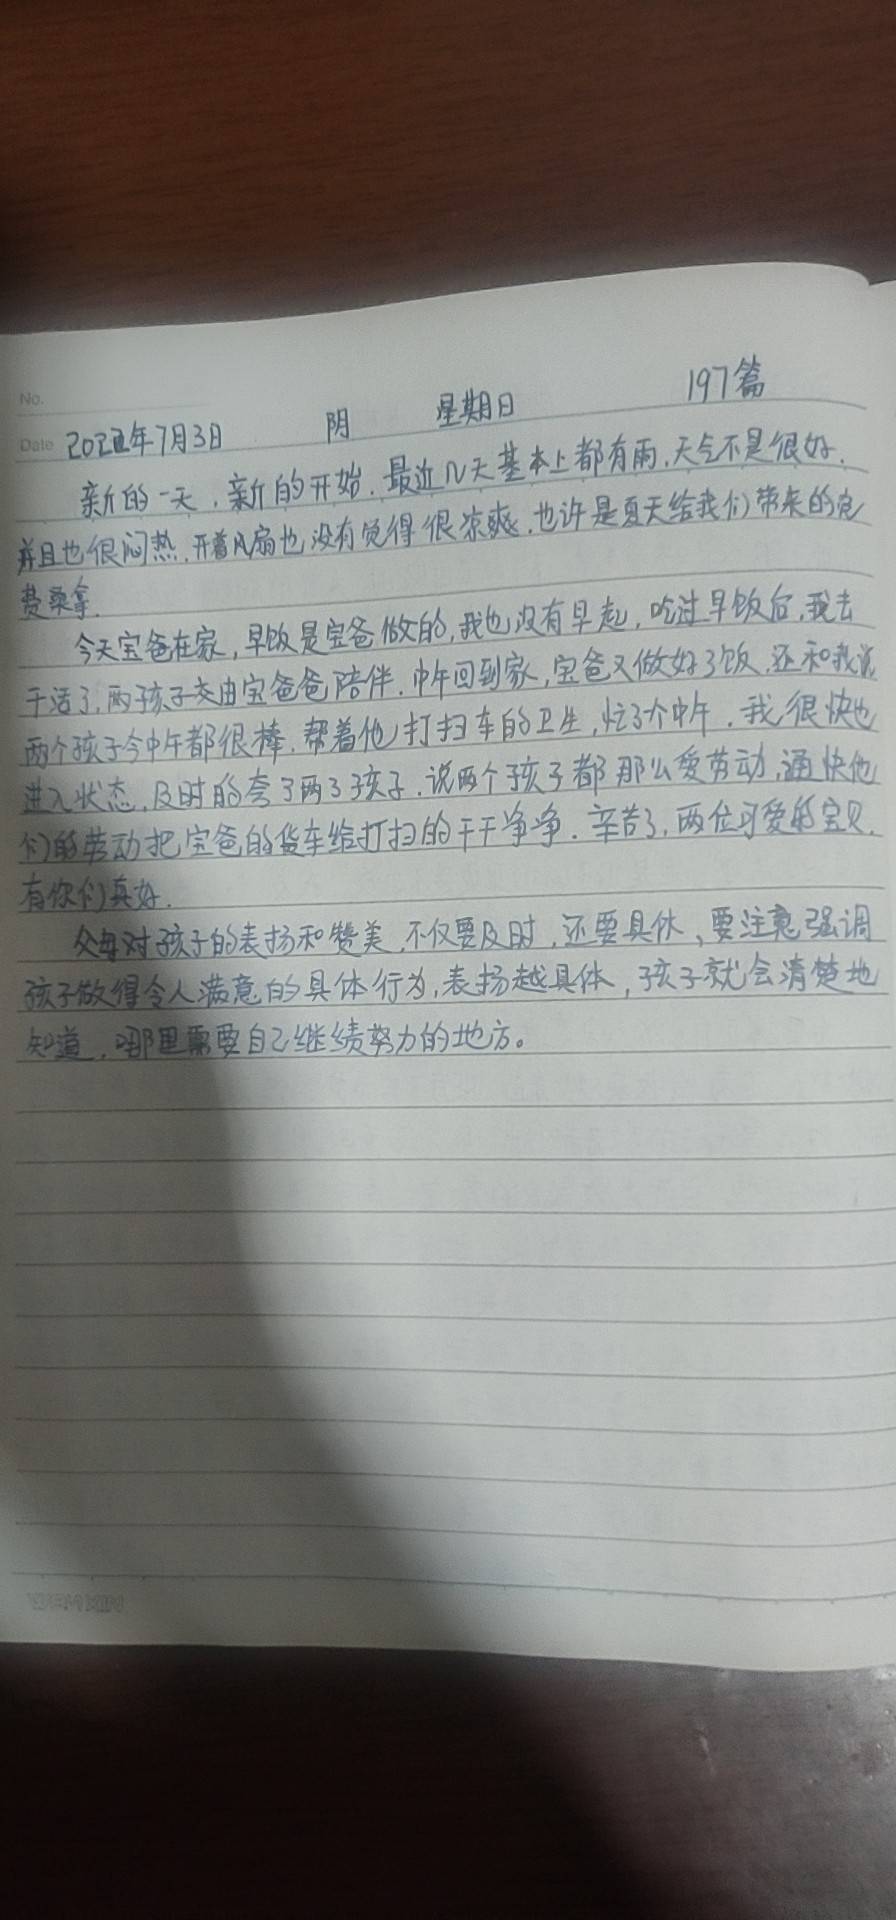 No.
197篇
Date 2022年7月3日 阴 星期日
新的一天,新的开始.最近几天基本上都有雨,天气不是很好.
并且也很闷热.开着风扇也没有觉得很凉爽.也许是夏天给我们带来的免
费桑拿.
今天宝爸在家,早饭是宝爸做的,我也没有早起,吃过早饭后,我去
干活了,两孩子交由宝爸爸陪伴.中午回到家,宝爸又做好了饭.还和我说
两个孩子今中午都很棒.帮着他打扫车的卫生,忙了个中午.我很快也
进入状态,及时的夸了两了孩子.说两个孩子都那么爱劳动,通快他
们的劳动把宝爸的货车给打扫的干干净净.辛苦了,两位可爱的宝贝.
有你们真好.
父母对孩子的表扬和赞美,不仅要及时,还要具体、要注意强调
孩子做得令人满意的具体行为,表扬越具体,孩子就会清楚地
知道,哪里需要自己继续努力的地方。